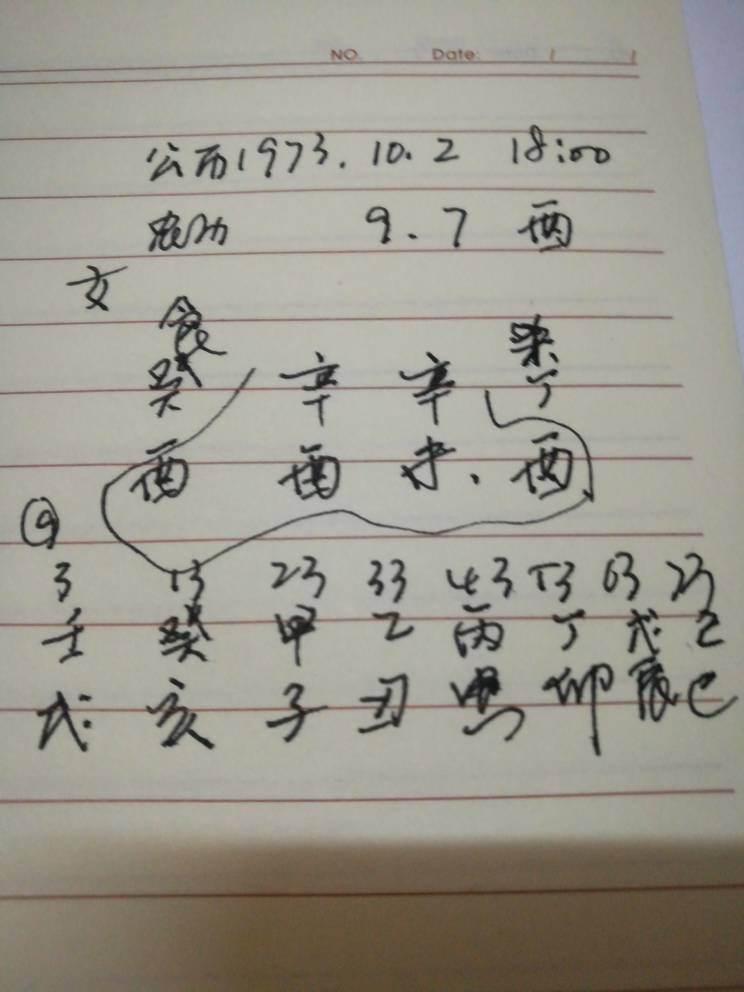 NO. Date: / /
公历1973.10.2 18:00
农历 9.7 酉
女
食 杀
癸 辛 辛 丁
酉 酉 未. 酉
⑨
3 13 23 33 43 53 63 73
壬 癸 甲 乙 丙 丁 戊 己
戌 亥 子 丑 寅 卯 辰 巳